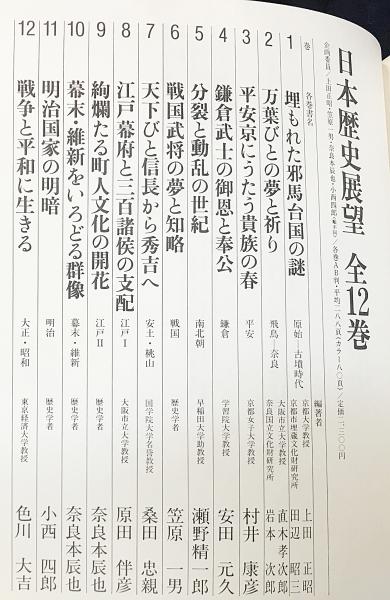 日本歴史展望 全12巻
企画委員/上田正昭・笠原一男・奈良本辰也・小西四郎(順不同)/各巻AB判・平均二八八頁(カラー八〇頁)/定価二三〇〇円
巻 各巻書名 編著者
1 埋もれた邪馬台国の謎 原始―古墳時代 京都大学教授 上田 正昭
京都市埋蔵文化財研究所 田辺 昭三
2 万葉びとの夢と祈り 飛鳥―奈良 大阪市立大学教授 直木孝次郎
奈良国立文化財研究所 岩本 次郎
3 平安京にうたう貴族の春 平安 京都女子大学教授 村井 康彦
4 鎌倉武士の御恩と奉公 鎌倉 学習院大学教授 安田 元久
5 分裂と動乱の世紀 南北朝 早稲田大学助教授 瀬野精一郎
6 戦国武将の夢と知略 戦国 歴史学者 笠原 一男
7 天下びと信長から秀吉へ 安土・桃山 国学院大学名誉教授 桑田 忠親
8 江戸幕府と三百諸侯の支配 江戸Ⅰ 大阪市立大学教授 原田 伴彦
9 絢爛たる町人文化の開花 江戸Ⅱ 歴史学者 奈良本辰也
10 幕末・維新をいろどる群像 幕末・維新 歴史学者 奈良本辰也
11 明治国家の明暗 明治 歴史学者 小西 四郎
12 戦争と平和に生きる 大正・昭和 東京経済大学教授 色川 大吉